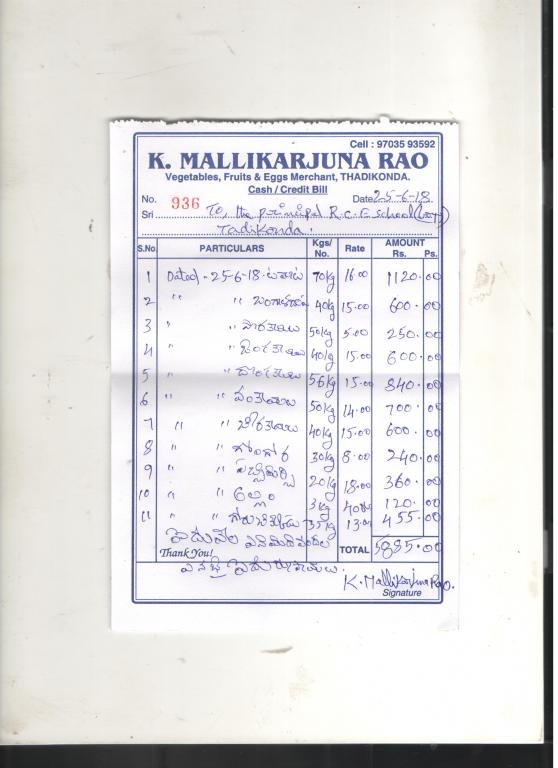 Cell : 97035 93592
K. MALLIKARJUNA RAO
Vegetables, Fruits & Eggs Merchant, THADIKONDA.
Cash / Credit Bill
No. 936 Date 25-6-18
Sri To, the principal R.C.E school
Tadikonda.
S.No. PARTICULARS Kgs/No. Rate AMOUNT Rs. Ps.
1 Dated - 25-6-18 - టమాట 70kg 16.00 1120.00
2 " " 40kg 15.00 600.00
3 " " 50kg 5.00 250.00
4 " " 40kg 15.00 600.00
5 " " దొండకాయలు 56kg 15.00 840.00
6 " " వంకాయలు 50kg 14.00 700.00
7 " " బీరకాయలు 40kg 15.00 600.00
8 " " గోంగూర 30kg 8.00 240.00
9 " " పచ్చిమిర్చి 20kg 18.00 360.00
10 " " అల్లం 3kg 120.00
11 " " 35kg 13.00 455.00
Thank You! TOTAL 5885.00
K. Mallikarjuna Rao.
Signature